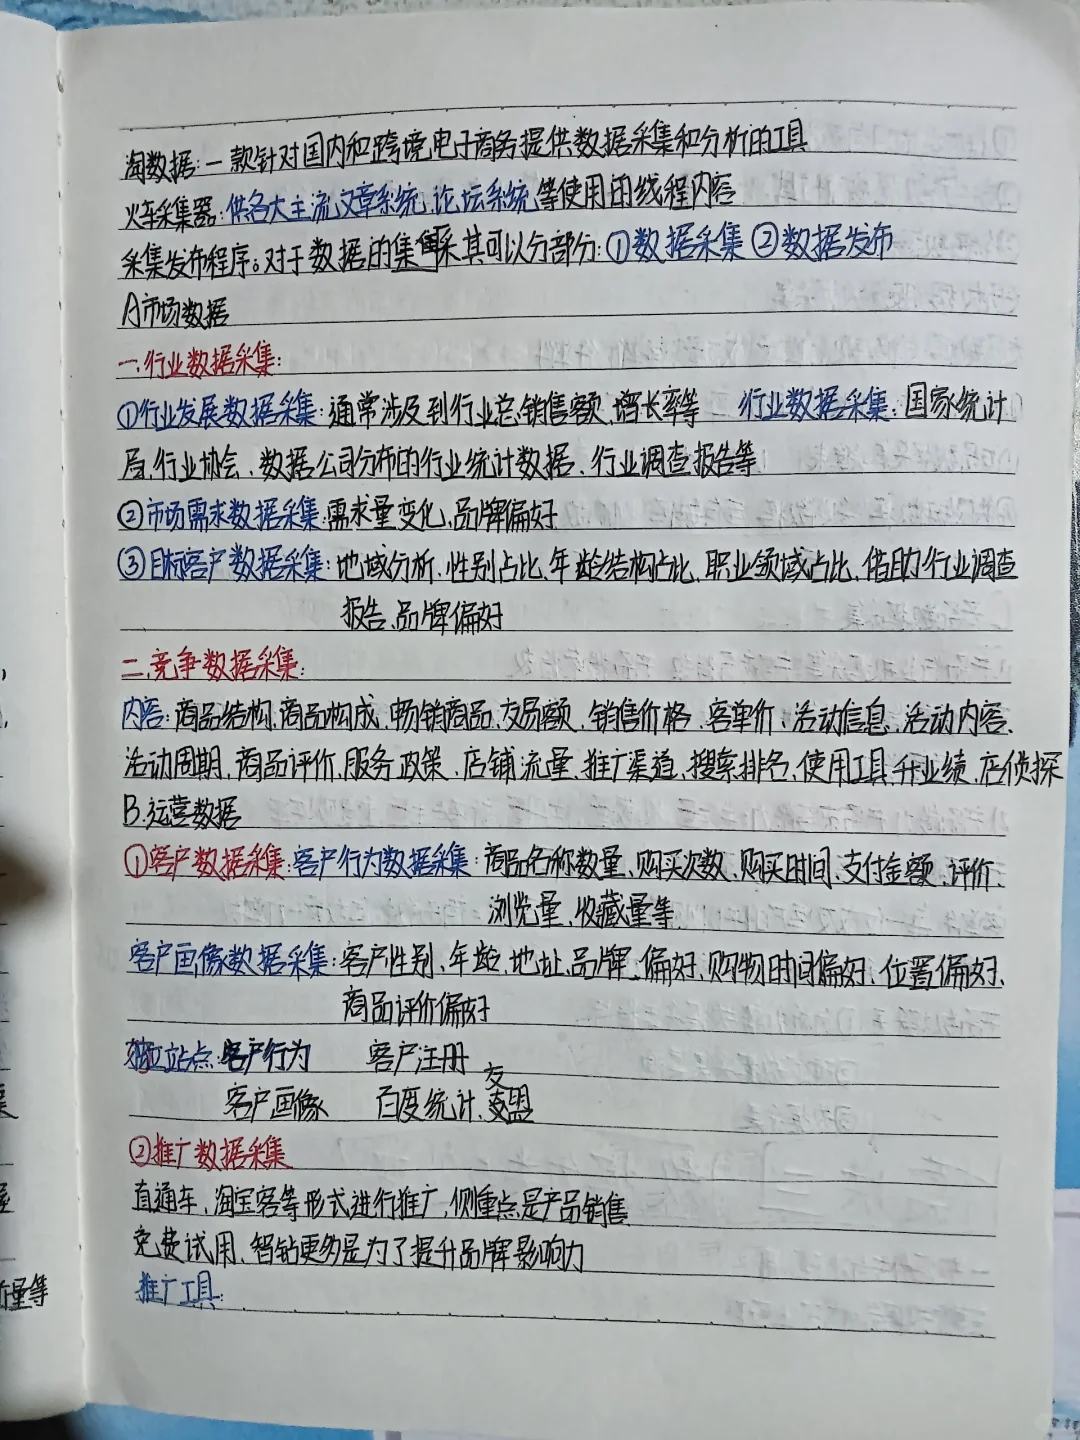 淘数据:一款针对国内和跨境电子商务提供数据采集和分析的工具
火车采集器:供各大主流文章系统、论坛系统等使用的线程内容
采集发布程序。对于数据的集采其可以分部分:①数据采集②数据发布
A市场数据
一.行业数据采集:
①行业发展数据采集:通常涉及到行业总销售额、增长率等 行业数据采集:国家统计
局、行业协会、数据公司分布的行业统计数据、行业调查报告等
②市场需求数据采集:需求量变化、品牌偏好
③目标客户数据采集:地域分析、性别占比、年龄结构占比、职业领域占比、借助行业调查
报告、品牌偏好
二.竞争数据采集:
内容:商品结构、商品构成、畅销商品、交易额、销售价格、客单价、活动信息、活动内容、
活动周期、商品评价、服务政策、店铺流量、推广渠道、搜索排名、使用工具、升业绩、店侦探
B.运营数据
①客户数据采集:客户行为数据采集:商品名称数量、购买次数、购买时间、支付金额、评价、
浏览量、收藏量等
客户画像数据采集:客户性别、年龄、地址、品牌、偏好、购物时间偏好、位置偏好、
商品评价偏好
独立站点 客户行为 客户注册
客户画像 百度统计、友盟
②推广数据采集
直通车、淘宝客等形式进行推广,侧重点是产品销售
免费试用、智钻更多是为了提升品牌影响力
推广工具:
量等